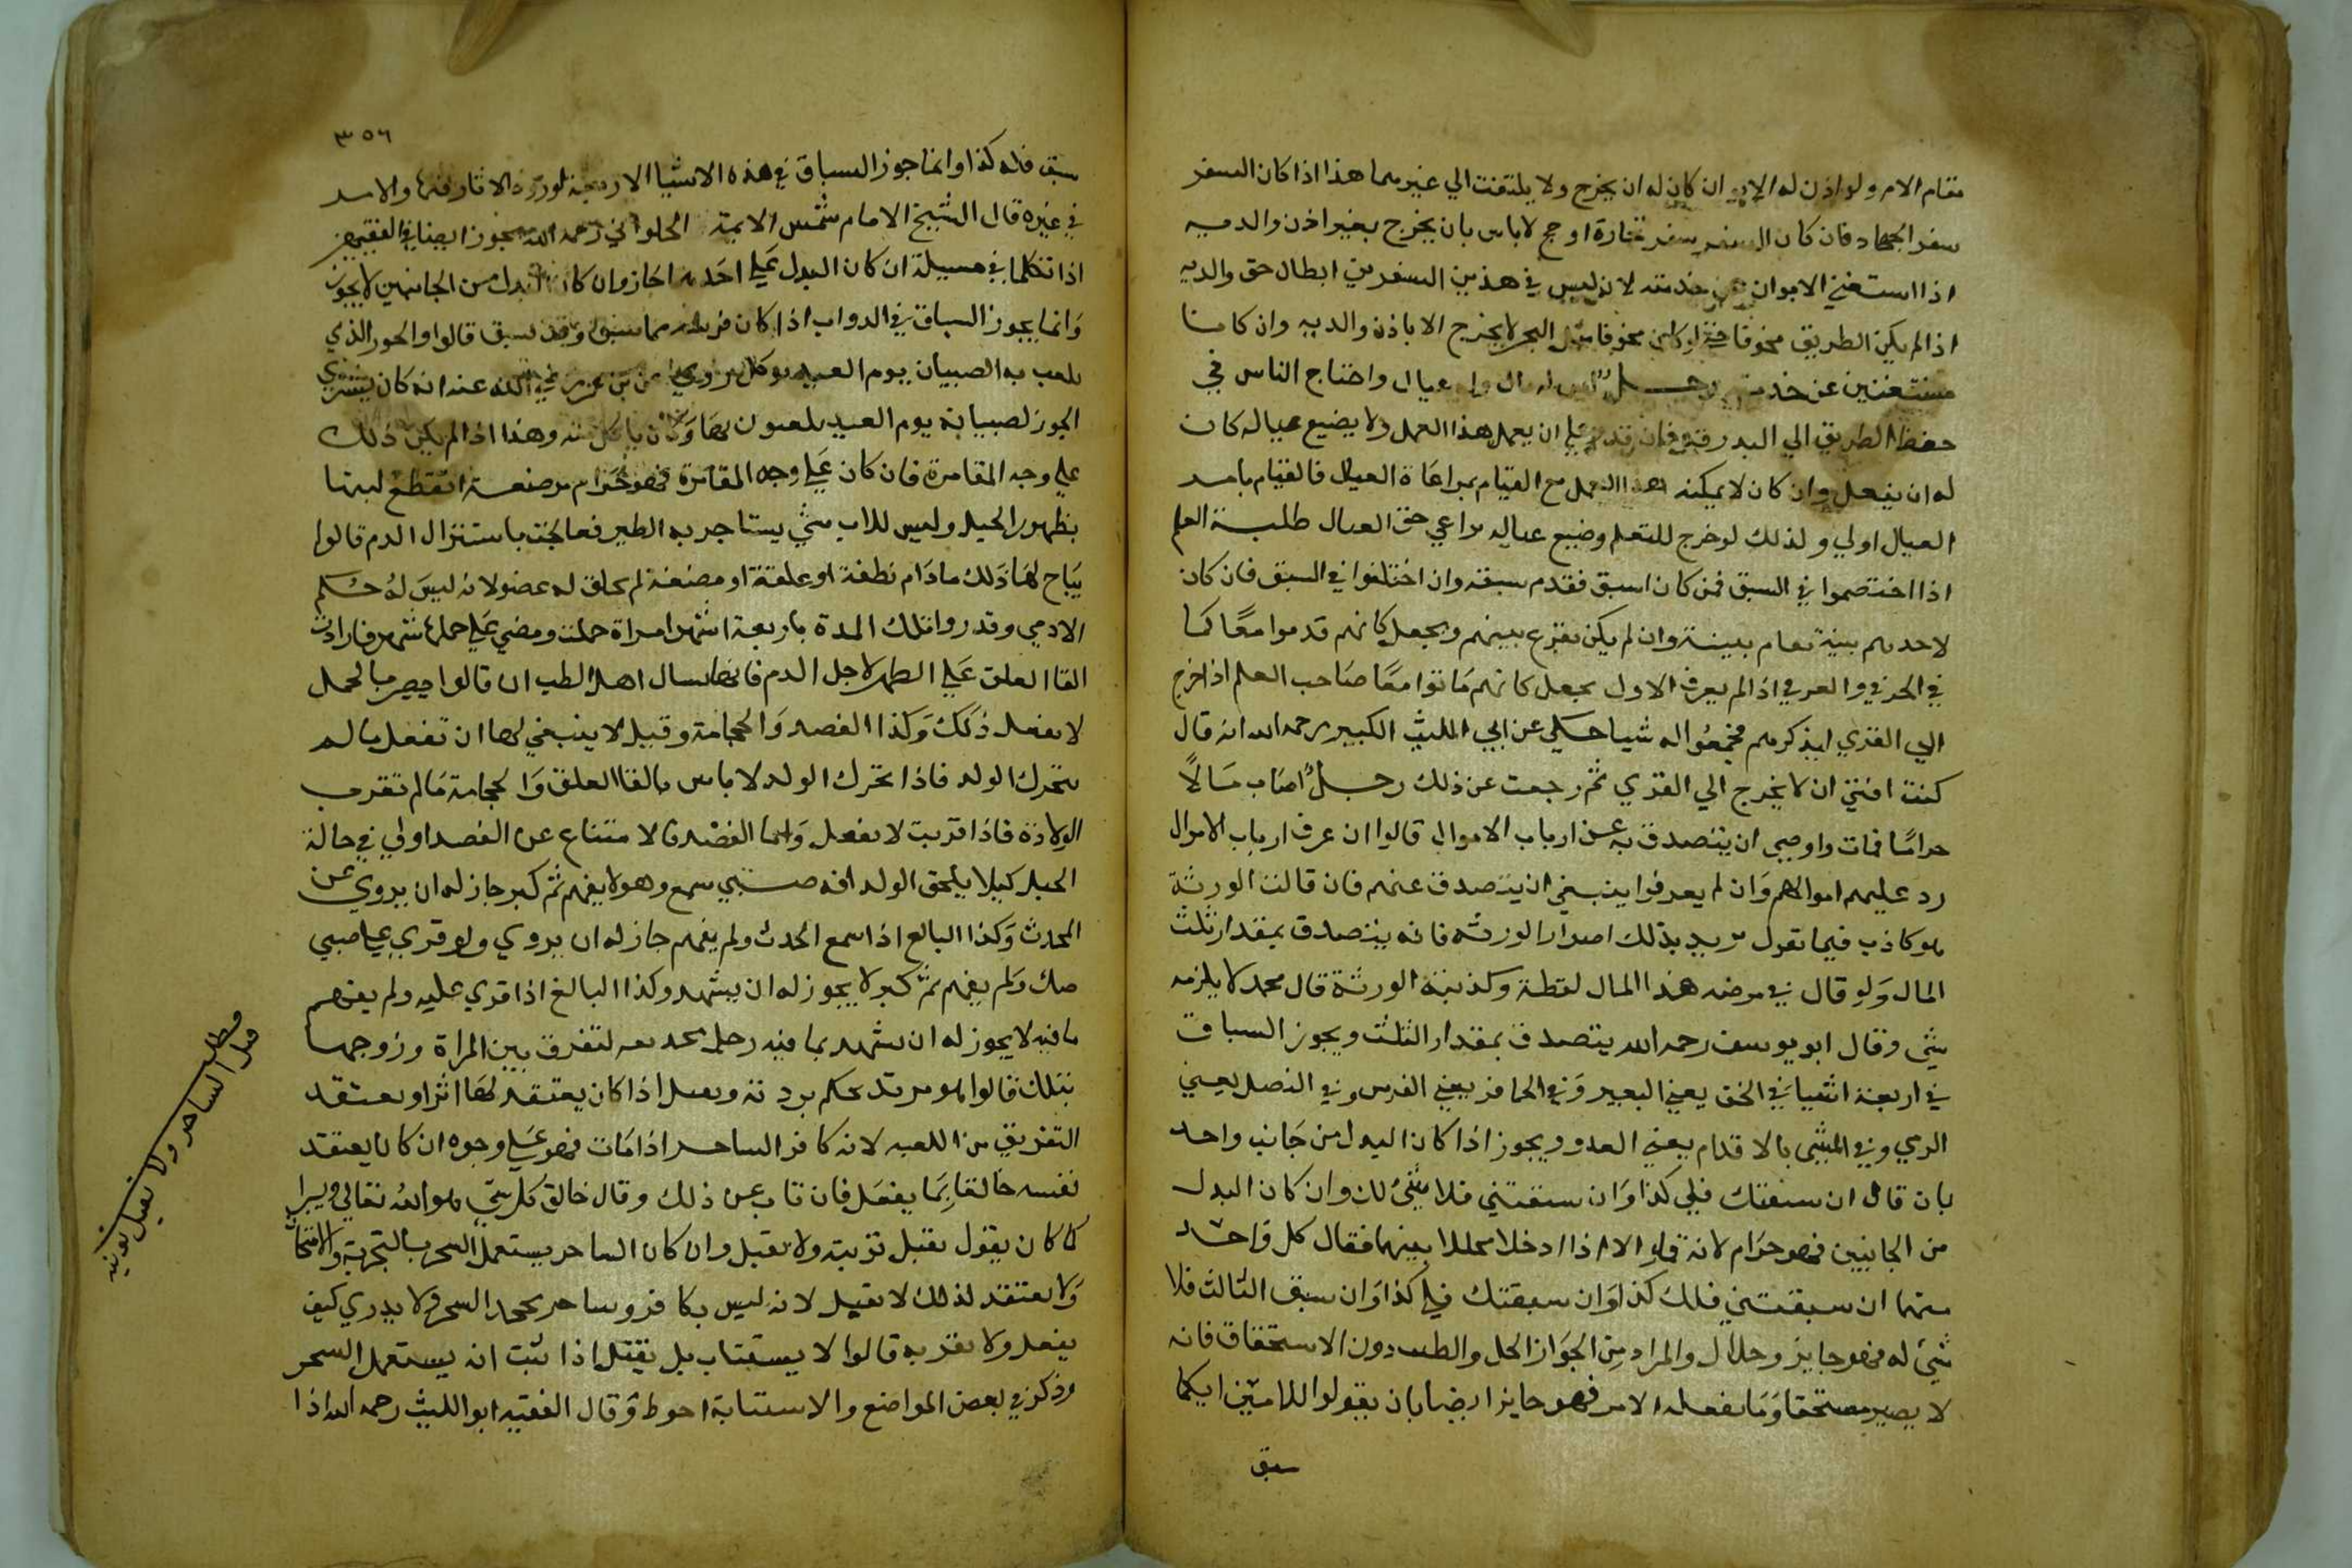 مقام الام ولو اذن له الابوان كان له ان يخرج ولا يلتفت الي غيرهما هذا اذا كان السفر
سفر الجهاد فان كان السفر سفر تجارة او حج لا باس بان يخرج بغير اذن والديه
اذا استغني الابوان عن خدمته لانه ليس في هذين السفرين ابطال حق والديه
اذا لم يكن الطريق مخوفا فان كان مخوفا مثل البحر لا يخرج الا باذن والديه وان كانا
مستغنيين عن خدمته رجل ليس له مال وله عيال واحتاج الناس في
حفظ الطريق الي البدرقة فان قدر علي ان يعمل هذا العمل ولا يضيع عياله كان
له ان يفعل وان كان لا يمكنه هذا العمل مع القيام بمراعاة العيال فالقيام بامر
العيال اولي ولذلك لو خرج للتعلم وضيع عياله يراعي حق العيال طلبة العلم
اذا اختصموا في السبق فمن كان اسبق فقدم سبقه وان اختلفوا في السبق فان كان
لاحدهم بينة تقام بينة وان لم يكن يقرع بينهم ويجعل كانهم قدموا معًا كما
في الحرقي والغرقي اذا لم يعرف الاول يجعل كانهم ماتوا معًا صاحب العلم اذا خرج
الي القري ليذكرهم فيجمعوا له شيا حكي عن ابي الليث الكبير رحمه الله انه قال
كنت افتي ان لا يخرج الي القري ثم رجعت عن ذلك رجل اصاب مالًا
حرامًا فمات واوصي ان يتصدق به عن ارباب الاموال قالوا ان عرف ارباب الاموال
رد عليهم اموالهم وان لم يعرفوا ينبغي ان يتصدق عنهم فان قالت الورثة
هو كاذب فيما تقول يريد بذلك اضرار الورثة فانه يتصدق بمقدار ثلث
المال ولو قال في مرضه هذا المال لقطة وكذبته الورثة قال محمد لا يلزمه
شي وقال ابو يوسف رحمه الله يتصدق بمقدار الثلث ويجوز السباق
في اربعة اشيا في الخف يعني البعير وفي الحافر يعني الفرس وفي النصل يعني
الرمي وفي المشي بالاقدام يعني العدو ويجوز اذا كان البدل من جانب واحد
بان قال ان سبقتك فلي كذا وان سبقتني فلا شي لك وان كان البدل
من الجانبين فهو حرام لانه قمار الا اذا ادخلا محللا بينهما فقال كل واحد
منهما ان سبقتني فلك كذا وان سبقتك فلي كذا وان سبق الثالث فلا
شي له فهو جايز وحلال والمراد من الجواز الحل والطيب دون الاستحقاق فانه
لا يصير مستحقا وما يفعله الامر فهو جايز ايضا بان يقولوا للاميين ايكما
سبق
٣٥٦
سبق فله كذا وانما جوز السباق في هذه الاشيا الاربعة لورود الاثار فيها والاسد
في غيره قال الشيخ الامام شمس الايمة الحلواني رحمه الله يجوز ايضا في الفقيهين
اذا تكلما في مسيلة ان كان البدل علي احدهما جاز وان كان البدل من الجانبين لا يجوز
وانما يجوز السباق في الدواب اذا كان فرسه مما يسبق وقد يسبق قالوا والجوز الذي
يلعب به الصبيان يوم العيد يوكل روي عن بن عمر رضي الله عنه انه كان يشتري
الجوز لصبيانه يوم العيد يلعبون بها وكان ياكل منه وهذا اذا لم يكن ذلك
علي وجه المقامرة فان كان علي وجه المقامرة فهو حرام مرضعة انقطع لبنها
بظهور الحبل وليس للاب شي يستاجر به الظير فعالجت باستنزال الدم قالوا
يباح لها ذلك مادام نطفة او علقة او مضغة لم يخلق له عضو لانه ليس له حكم
الادمي وقدروا تلك المدة باربعة اشهر امراة حملت ومضي علي حملها شهر فارادت
القا العلق علي الظهر لاجل الدم فانها تسال اهل الطب ان قالوا يضر بالحمل
لا تفعل ذلك وكذا الفصد والحجامة وقيل لا ينبغي لها ان تفعل ما لم
يتحرك الولد فاذا تحرك الولد لا باس بالقا العلق والحجامة ما لم تقرب
الولادة فاذا قربت لا تفعل واما الفصد فالامتناع عن الفصد اولي في حالة
الحبل كيلا يلحق الولد افه صبي سمع وهو لا يفهم ثم كبر جاز له ان يروي عن
المحدث وكذا البالغ اذا سمع الحدث ولم يفهم جاز له ان يروي ولو قري علي صبي
صك ولم يفهم ثم كبر لا يجوز له ان يشهد وكذا البالغ اذا قري عليه ولم يفهم
ما فيه لا يجوز له ان يشهد بما فيه رجل يتخذ لعبه لتفرق بين المراة وزوجها
بتلك قالوا هو مرتد يحكم بردته ويقتل اذا كان يعتقد لها اثرا ويعتقد
التفريق من اللعبه لانه كافر الساحر اذا مات فهو علي وجوه ان كان يعتقد
نفسه خالقا بما يفعل فان تاب عن ذلك وقال خالق كل شي هو الله تعالي ويبرا
كما كان يقول تقبل توبته ولا يقتل وان كان الساحر يستعمل السحر بالتجربة والامتحان
ولا يعتقد لذلك لا يقتل لانه ليس بكافر وساحر يجحد السحر ولا يدري كيف
يفعل ولا يقر به قالوا لا يستتاب بل يقتل اذا ثبت انه يستعمل السحر
وذكر في بعض المواضع والاستتابة احوط وقال الفقيه ابو الليث رحمه الله اذا
مطلب
قتل الساحر ولا تقبل توبته